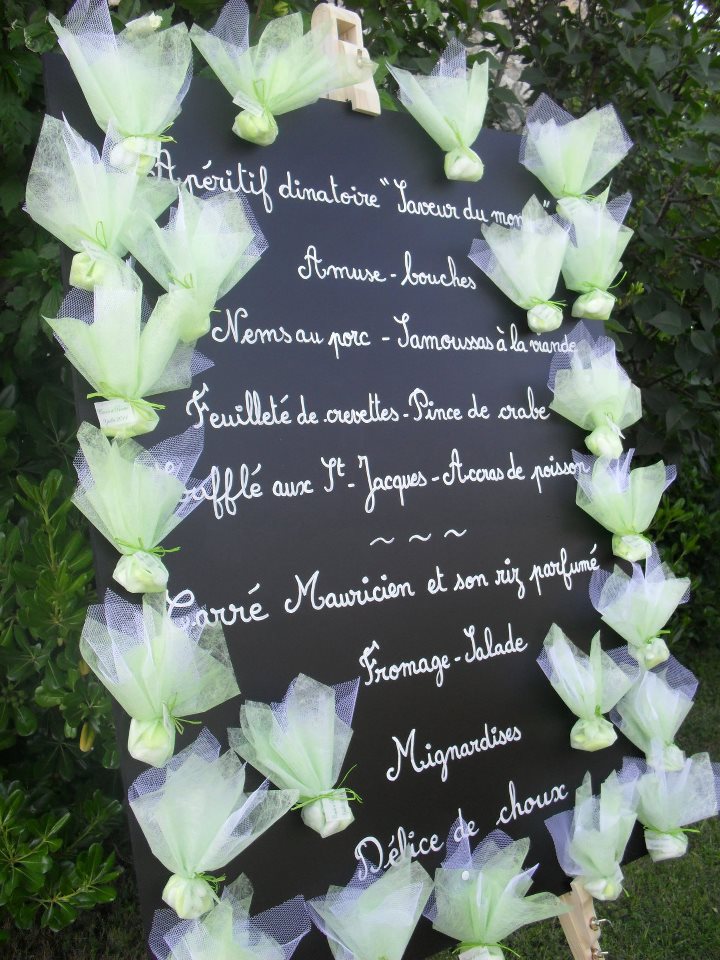 Apéritif dinatoire "Saveur du
Amuse-bouches
Nems au porc - Samoussas à la viande
Feuilleté de crevettes - Pince de crabe
Soufflé aux St-Jacques - Accras de poisson
~ ~ ~
Carré Mauricien et son riz parfumé
Fromage - Salade
Mignardises
Délice de choux